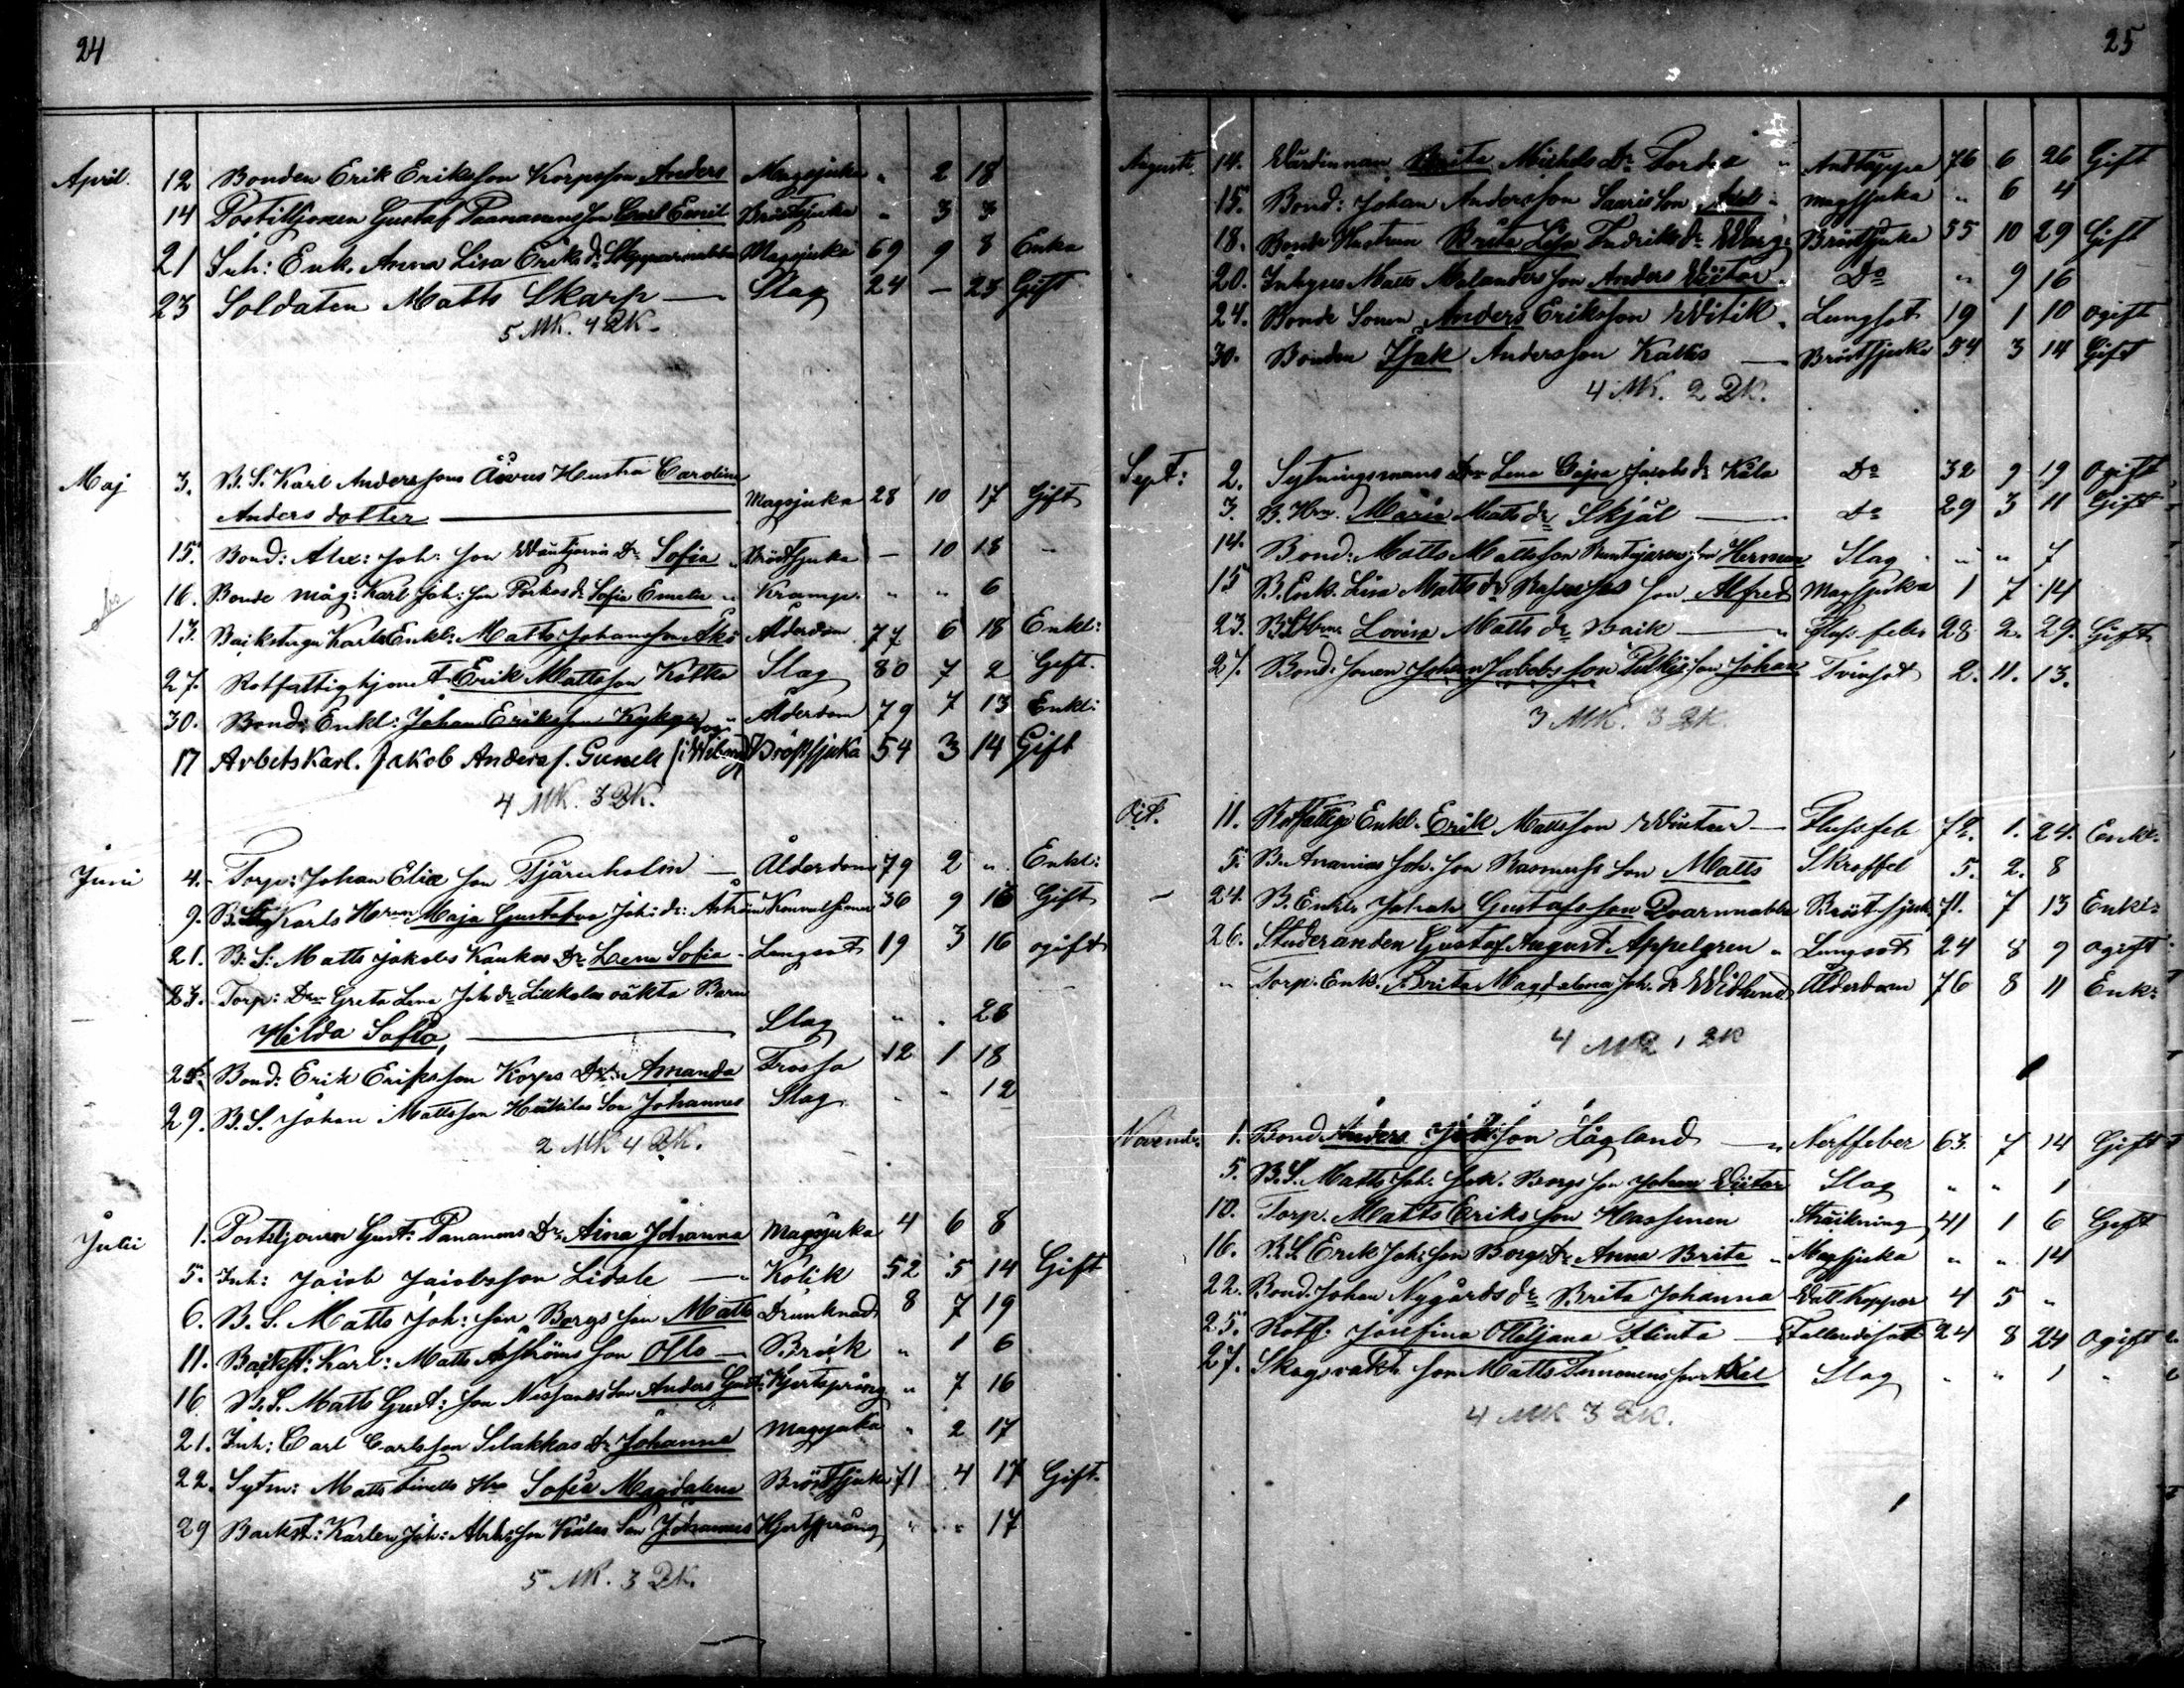 24
April. 12 Bonden Erik Eriksson Korpsson Anders Magsjuka " 2 18
14 Postiljonen Gustaf Paananens son Carl Emil Bröstsjuka " 3 3
21 Inh: Enk. Anna Lisa Eriks dr Skepparnabba Magsjuka 69 9 8 Enka
23 Soldaten Matts Skarp — Slag 24 — 23 Gift
5 MK. 4 QK.
Maj 3. B. S. Karl Anderssons Hustru Carolina
Anders dotter — Magsjuka 28 10 17 Gift
15. Bond: Alex: Joh: son Dr Sofia Bröstsjuka — 10 18 "
16. Bonde måg: Karl Joh: son Porkas dr Sofia Emelie " Kramp. " " 6
13. Enkl: Matts Johansson Åldrdom 77 6 18 Enkl:
27. Rotfattighjonet Erik Mattsson Kotka Slag 80 7 2 Gift.
30. Bond: Enkl: Johan Eriksson Åldrdom 79 7 13 Enkl:
17 Arbets Karl. Jakob Anders s. Gunell Bröstsjuka 54 3 14 Gift
4 MK. 3 QK.
Juni 4. Torp: Johan Eliæ son Tjärnholm — Ålderdom 79 2 " Enkl:
9. Karls Hrun Maja Gustafva Joh: dr: 36 9 16 Gift
21. B: S: Matts Jakobs Kaukos Dr Lena Sofia Lungsot 19 3 16 ogift
23. Torp: Drn Greta Lena Joh dr oäkta Barn
Hilda Sofia, — Slag " . 28
Bond: Erik Eriksson Korps Dr: Amanda Frossa 12 1 18
29. B. S. Johan Mattsson Son Johannes Slag . . 12
2 MK 4 QK.
Julii 1. Postiljonen Gust: Pananens Dr. Aina Johanna Magsjuka 4 6 8
5. Inh: Jacob Jacobsson — Kolik 52 5 14 Gift
6. B. S. Matts Joh: son Borgs son Matts Drunknad 8 7 19
11. Karl: Matts Åströms son Otto — Bråk " 1 6
16 B. S. Matts Gust: son Son Anders Gust: Hjertsprång " 7 16
21. Inh: Carl Carlsson Silakkas Dr Johanna Magsjuka " 2 17
22. Sytn: Matts Hu Sofia Magdalena Bröstsjuka 71 4 17 Gift.
29 Karlen Joh: son Kålas Son Johannes Hjertsprång " " 17
5 MK. 3 QK.
25
Augusti. 14. Värdinnan Brita Michels Dr Andtäppa 76 6 26 Gift
15. Bond: Johan Andersson Saaris Son Magsjuka " 6 4
18. Bonde Hustrun Brita Lisa Fredriks dr Bröstsjuka 55 10 29 Gift
20. Inhyses Matts Melanders son Anders Victor. Do " 9 16
24. Bonde Sonen Anders Eriksson Witik. Lungsot 19 1 10 ogift
30. Bonden Isak Andersson — Bröstsjuka 54 3 14 Gift
4 MK. 2 QK.
Sept: 2. Sytningsmans Drn Lena Cajsa Jacobs dr Kåla Do 32 9 19 Ogift
3. B. Hru. Maria Matts dr Skjäl — Do 29 3 11 Gift
14. Bond: Matts Mattsson son Herman Slag " " 7
15 B. Enk. Lisa Matts dr son Alfred Magsjuka 1 7 14
23. Lovisa Matts dr Baik — " 28 2. 29. Gift
27. Bond: sonen Johan Jakobsson son Johan Tvinsot 2. 11. 13.
3 MK. 3 QK.
Oct. 11. Rotfattige Enkl. Erik Mattsson — 72. 1. 24. Enkl.
5. B. Ananias Joh. son Rasmuss son Matts Skroffel 5. 2. 8
24. B. Enkl. Johan Gustafsson Qvarnnabba Bröstsjuk 71. 7 13 Enkl:
26. Studeranden Gustaf August Appelgren " Lungsot 24 8 9 ogift
" Torp. Enk. Brita Magdalena Joh. dr Widlund Ålderdom 76 8 11 Enk:
4 MK 1 QK
Novemb. 1. Bond Anders son Lågland — Nerffeber 63. 7 14 Gift
5. B. S. Matts Joh. son. Borgs son Johan Victor Slag " " 1
10. Torp. Matts Eriks son Hassinen 41 1 6 Gift
16. B. S. Erik Joh: son Borgs Dr Anna Brita " Magsjuka " " 14
22. Bond. Johan Nygårds dr Brita Johanna Vattkoppor 4 5 "
25. Rotf: Josefina Ottiljana Flinta — Fallandesot 24 8 24 Ogift
27. son Matts son Slag " " 1 "
4 MK 3 QK.